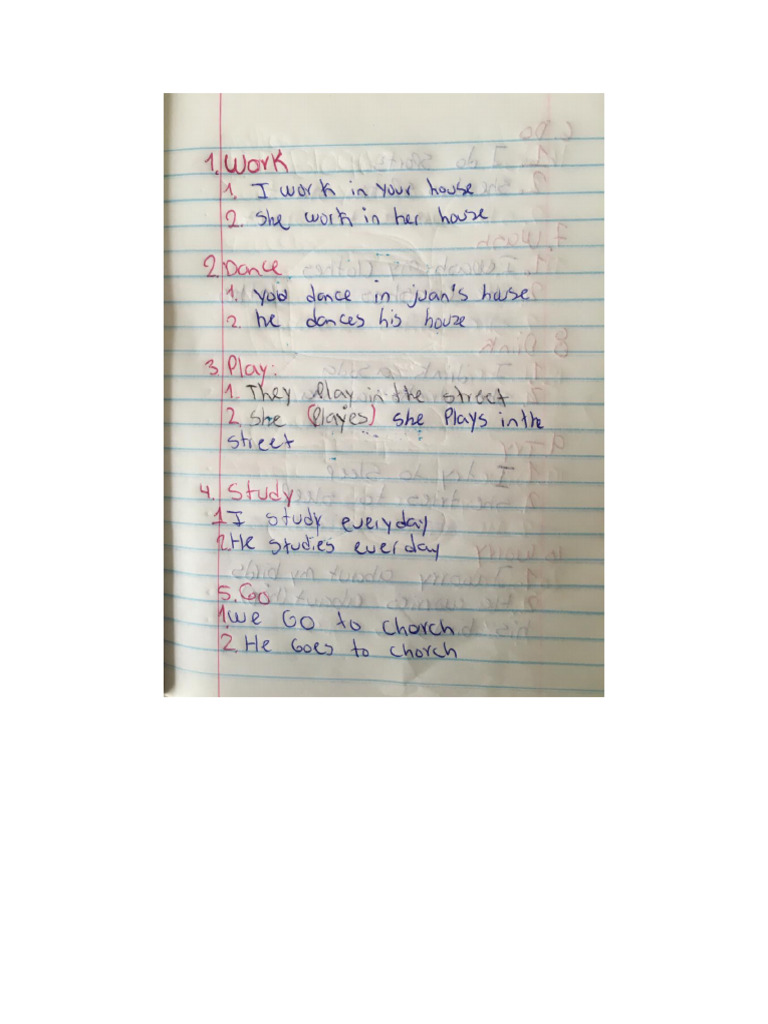 1. Work
1. I work in your house
2. She work in her house
2. Dance
1. you dance in juan's house
2. he dances his house
3. Play:
1. They Play in the street
2. She (Playes) she Plays in the
street
4. Study
1. I study everyday
2. He studies everday
5. Go
1. we Go to chorch
2. He Goes to chorch